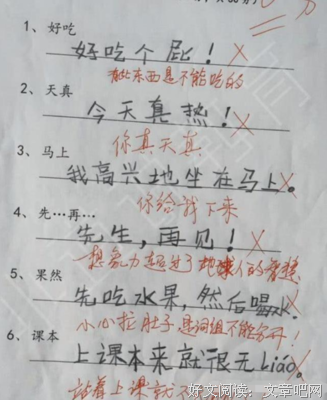 1、好吃
好吃个屁！
有些东西是不能吃的
2、天真
今天真热！
你真天真
3、马上
我高兴地坐在马上。
你给我下来
4、先…再…
先生，再见！
想象力超过了地球人的智慧
5、果然
先吃水果，然后喝水。
小心拉肚子是词组不能分开！
6、课本
上课本来就很无Liáo。
站着上课就不
好文阅读：文章吧网